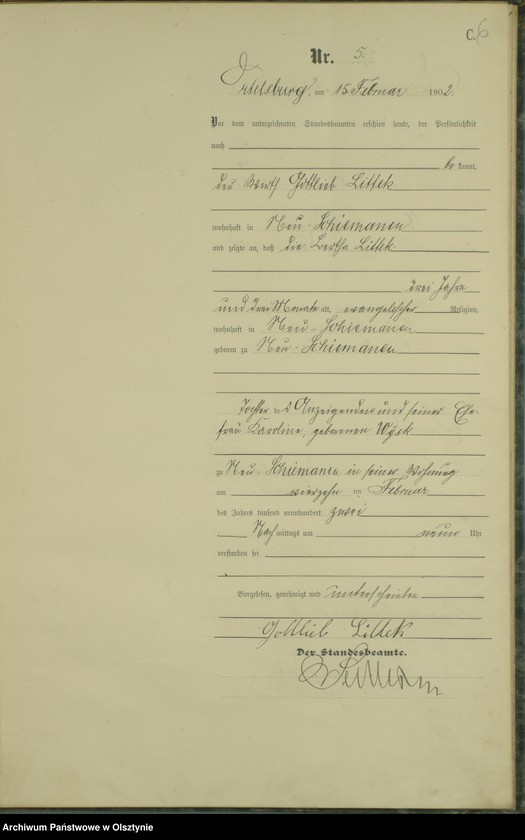 C. 6
Nr. 5.
Ortelsburg, am 15 Februar 1902.
Vor dem unterzeichneten Standesbeamten erschien heute, der Persönlichkeit
nach
be kannt,
der Wirth Gottlieb Littek
wohnhaft in Neu-Schiemanen
und zeigte an, daß die Bertha Littek
drei Jahre
und drei Monate alt, evangelischer Religion,
wohnhaft in Neu-Schiemanen
geboren zu Neu-Schiemanen
Tochter des Anzeigenden und seiner Ehe-
frau Karoline, geborenen Wysk
zu Neu-Schiemanen in seiner Wohnung
am vierzehn ten Februar
des Jahres tausend neunhundert zwei
Nach mittags um neun Uhr
verstorben sei
Vorgelesen, genehmigt und unterschrieben
Gottlieb Littek
Der Standesbeamte.
Archiwum Państwowe w Olsztynie